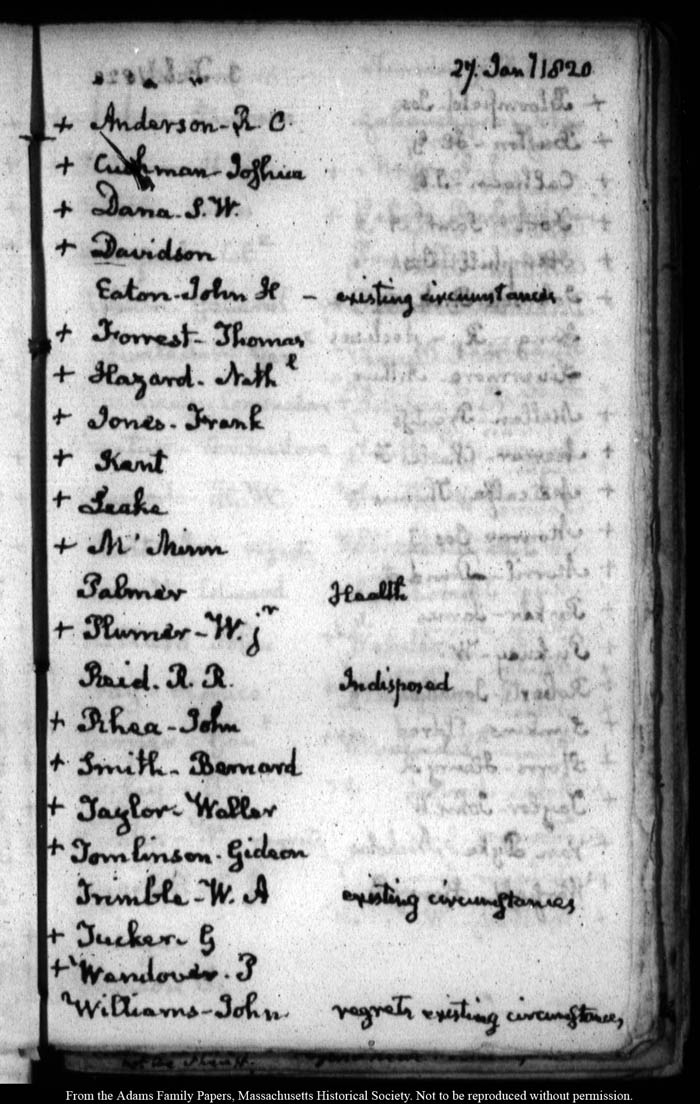 27. Jany 1820
+ Anderson - R. C
+ Cushman - Joshua
+ Dana - S. W.
+ Davidson
Eaton - John H - existing circumstances
+ Forrest - Thomas
+ Hazard - Nath l
+ Jones - Frank
+ Kent
+ Leake
+ M'
Palmer Health
+ Plumer - W. jr
Reid. R. R. Indisposed
+ Rhea - John
+ Smith - Bernard
+ Taylor - Waller
+ Tomlinson - Gideon
Trimble - W. A existing circumstances
+ Tucker - G
+ Wendover. P
Williams - John regrets existing circumstances,
From the Adams Family Papers, Massachusetts Historical Society. Not to be reproduced without permission.